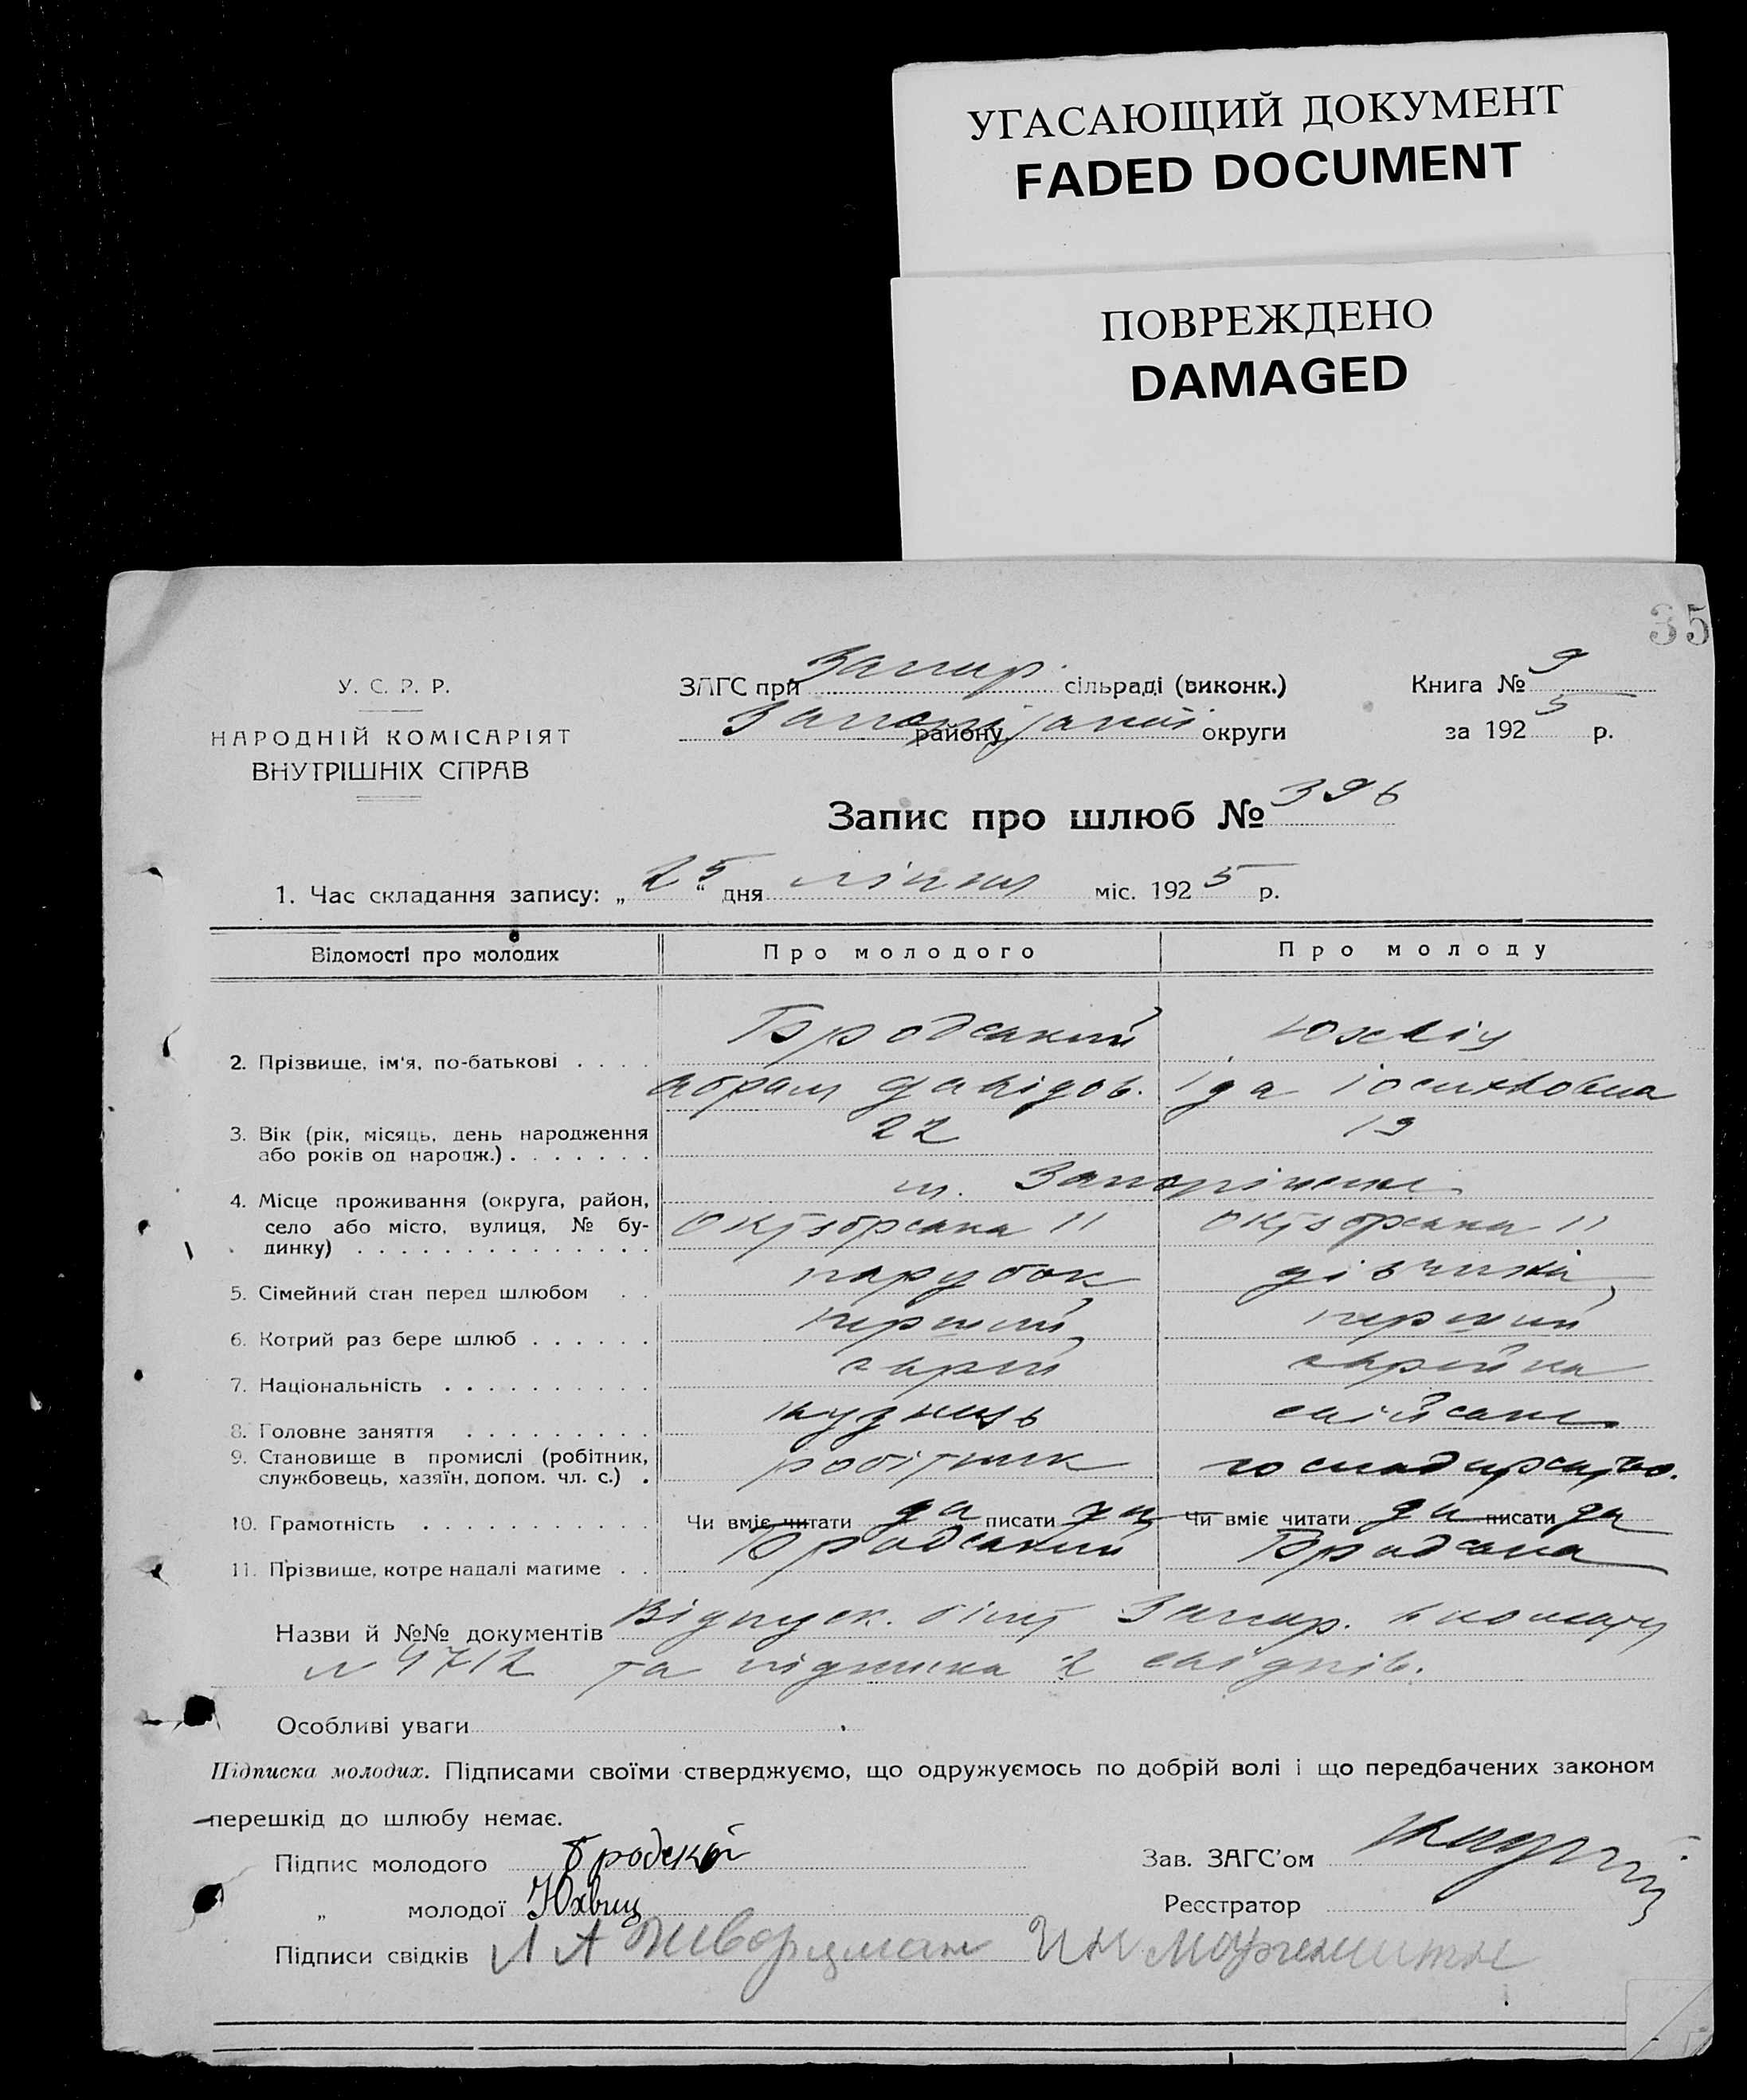 УГАСАЮЩИЙ ДОКУМЕНТ
FADED DOCUMENT
ПОВРЕЖДЕНО
DAMAGED
35
У. С. Р. Р.
НАРОДНІЙ КОМІСАРІЯТ
ВНУТРІШНІХ СПРАВ
ЗАГС при Запор. сільраді (виконк.)
району округи
Книга № 9
за 1925 р.
Запис про шлюб № 396
1. Час складання запису: „25" дня липня міс. 1925 р.
Відомості про молодих Про молодого Про молоду
2. Прізвище, ім'я, по-батькові Бродський Юхвіц
Абрам Давідов. Іда Іосиховна
3. Вік (рік, місяць, день народження або років од народж.) 22 19
4. Місце проживання (округа, район, село або місто, вулиця, № будинку) м. Запоріжжє
Октябрська 11 Октябрська 11
5. Сімейний стан перед шлюбом парубок дівчина
6. Котрий раз бере шлюб перший перший
7. Національність єврей єврейка
8. Головне заняття кузнець сельське
9. Становище в промислі (робітник, службовець, хазяїн, допом. чл. с.) робітник господарство.
10. Грамотність Чи вміє читати да писати да Чи вміє читати да писати да
11. Прізвище, котре надалі матиме Бродський Бродська
Назви й №№ документів Відпуск. біл. Запор.
№ 4712 та підписка 2 свідків.
Особливі уваги
Підписка молодих. Підписами своїми стверджуємо, що одружуємось по добрій волі і що передбачених законом
перешкід до шлюбу немає.
Підпис молодого Бродский
Зав. ЗАГС'ом
„ молодої Юхвиц
Реєстратор
Підписи свідків